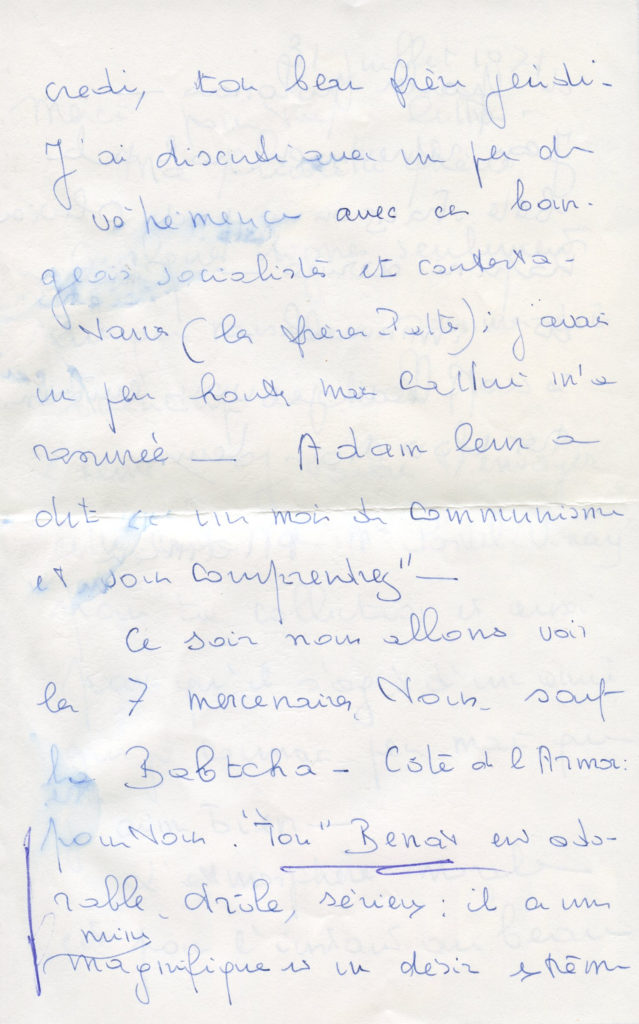 credi, ton beau frère jeudi -
J'ai discuté avec un peu de
véhémence avec ces bour-
geois socialistes et contesta-
taires (les frères); j'avais
un peu honte mais m'a
rassurée — Adam leur a
dit " un mois de communisme
et vous comprendrez" —
Ce soir nous allons voir
les 7 mercenaires, Nous, sauf
la Babtcha - Côté de l'Armor:
pour Nous. "Ton" Benoît est ado-
rable, drôle, sérieux : il a une
mine
magnifique et un désir extrême